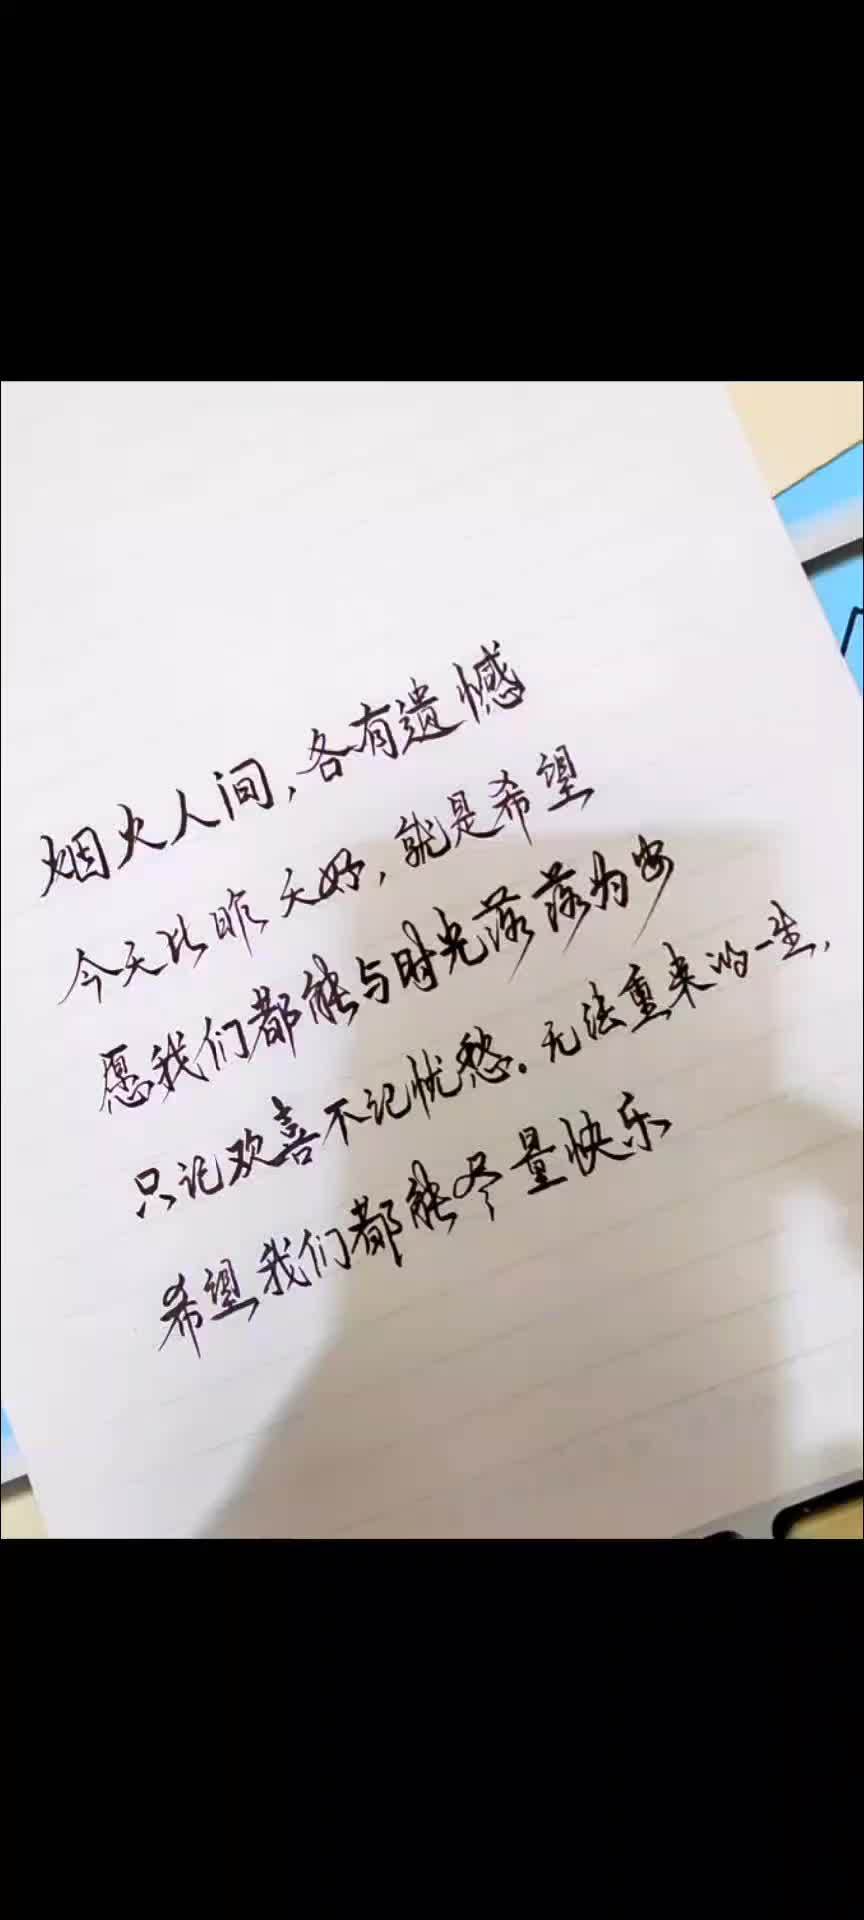 烟火人间，各有遗憾
今天比昨天好，就是希望
愿我们都能与时光落落为安
只记欢喜不记忧愁。无法重来的一生，
希望我们都能尽量快乐